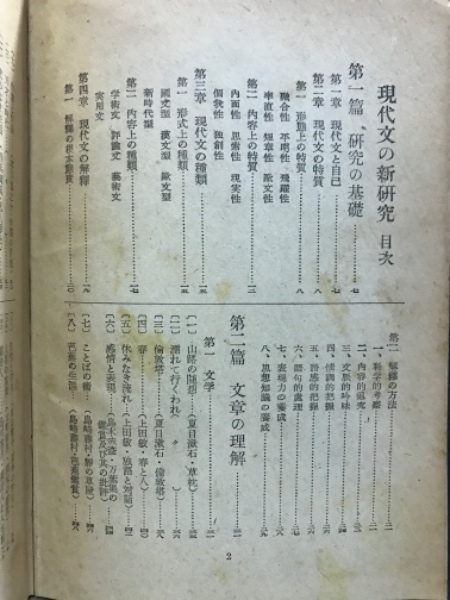 現代文の新研究 目次
第一篇 研究の基礎……七
第一章 現代文と自己……七
第二章 現代文の特質……八
第一 形態上の特質……八
融合性 不磨性 飛躍性
率直性 短章性 散文性
第二 内容上の特質……一二
内面性 思索性 現実性
個我性 独創性
第三章 現代文の種類……一五
第一 形式上の種類……一五
國文型 漢文型 欧文型
新時代型
第二 内容上の種類……一七
学術文 評論文 藝術文
実用文
第四章 現代文の解釋……一九
第一 解釋の根本態度……二〇
第二 解釋の方法……二一
一、科学的考察……二一
二、内容的追究
三、文脈的吟味
四、情調的把握
五、語感的把握
六、語句的處理
七、表現力の養成
八、思想知識の養成……二九
第二篇 文章の理解……三一
第一 文学
〔一〕山路の随想……(夏目漱石・草枕)
〔二〕濡れて行くわれ(〃)
〔三〕倫敦塔……(夏目漱石・倫敦塔)
〔四〕春……(上田敏・春と人)
〔五〕休みなき流れ…(上田敏・
〔六〕感情と表現…(島木赤彦・万葉集の
鑑賞及び其の批評)
〔七〕ことばの術…(島崎藤村・
〔八〕芭蕉の生涯…(島崎藤村・
2